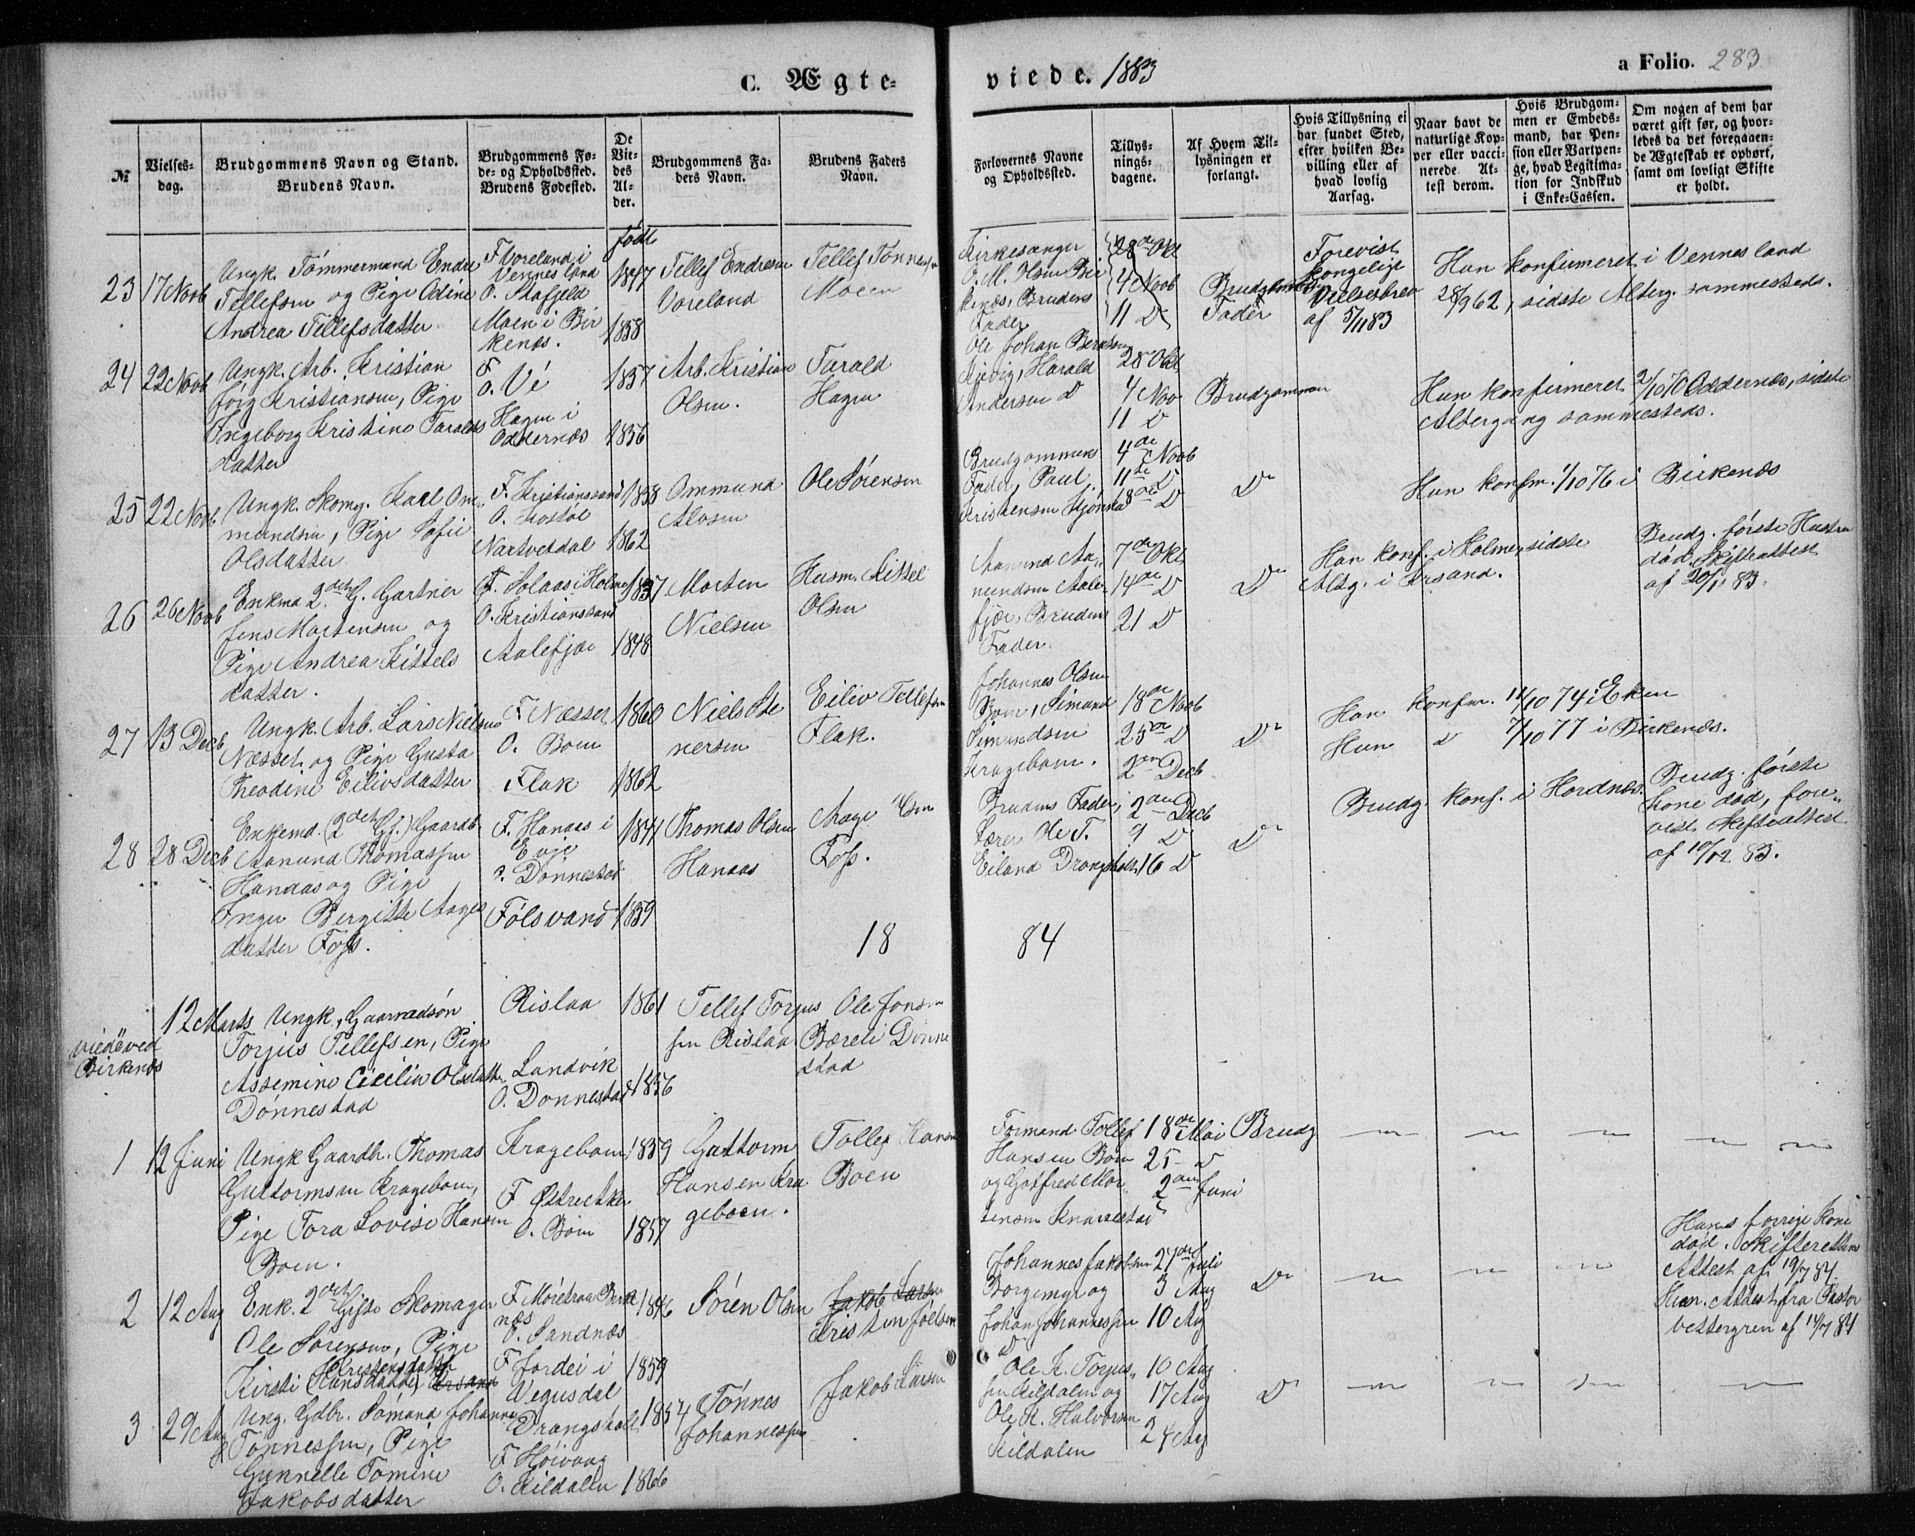 C. Ægte-
viede. 1883
a Folio. 283
№
Vielses-
dag.
Brudgommens Navn og Stand.
Brudens Navn.
Brudgommens Fø-
de- og Opholdssted.
Brudens Fødested.
De
Vie-
des
Al-
der.
Brudgommens Fa-
ders Navn.
Brudens Faders
Navn.
Forlovernes Navne
og Opholdssted.
Tillys-
nings-
dagene.
Af Hvem Til-
lysningen er
forlangt.
Hvis Tillysning ei
har fundet Sted,
efter hvilken Be-
villing eller af
hvad lovlig
Aarsag.
Naar havt de
naturlige Kop-
per eller vacci-
nerede. At-
test derom.
Hvis Brudgom-
men er Embeds-
mand, har Pen-
sion eller Vartpen-
ge, hvad Legitima-
tion for Indskud
i Enke-Cassen.
Om nogen af dem har
været gift før, og hvor-
ledes da det foregaaen-
de Ægteskab er ophørt,
samt om lovligt Skifte
er holdt.
født
23 17 Novb
Ungk. Tömmermand Endre
Tellefsen og Pige Odine
Andrea Tellefsdatter
F. Voreland i
Vennesland
O. Stafjeld
Moen i Bir
kenes.
1847
1858
Tellef Endresen
Voreland
Tellef Tønnesen
Moen
Kirkesanger
O. M. Olsen Bir
kenes, Brudens
Fader
28de Okt
4 Novb
11 D
Brudgommens
Fader
Forevist
kongelige
Vielsesbrev
af 5/11 83
Han konfirmeret i Vennesland
28/9 62, sidste Alterg. sammesteds.
24 22 Novb
Ungk. Arb. Kristian
Jörg Kristiansen, Pige
Ingeborg Kristine Taralds
datter
F.
O. Vé
Hagen i
Oddernes
1857
1856
Arb. Kristian
Olsen.
Tarald
Hagen
Ole Johan Berntsen
Kjevig, Harald
Andersen D
28 Okt
4 Nov
11 D
Brudgommen
Hun konfirmeret 2/10 70 Oddernes, sidste
Altergang sammesteds.
25 22 Novb
Ungk. Skomg. Karl Om-
mundsen, Pige Sofie
Olsdatter
F. Kristianssand
O. Kostöl
Nartvetdal
1858
1862
Ommund
Alosen
Ole Sörensen
Brudgommens
Fader, Paul
Kristensen
4de Novb
11te D
18de D
D
Hun konfm. 1/10 76 i Birkenes
26 26 Novb
Enkmd 2det G. Gartner
Jens Mortensen og
Pige Andrea Kittels
datter.
F. Solaas i Holme
O. Kristianssand
Aalefjær
1837
1848
Morten
Nielsen
Husm. Kittel
Olsen
Aanund Aa-
nundsen Aale
fjær, Brudens
Fader
7de Okt
14de D
21 D
D
Han konf. i Holme, sidste
Altg. i Krsand.
Brudg. første Hustru
död. Skifteattest
af 20/1 83.
27 13 Decb
Ungk. Arb. Lars Nielsen
Næsset og Pige Gusta
Theodine Eilivsdatter
F. Næsset
O. Boen
Flak
1860
1862
Niels Ste
nersen
Eiliv Tellefsen
Flak.
Johannes Olsen
Boen, Simund
Simundsen
Krageboen.
18de Novb
25de D
2den Decb
D
Han konfm. 11/10 74 i Eken
Hun D 7/10 77 i Birkenes.
28 28 Decb
Enkemd. (2det Gf.) Gaardb.
Aanund Thomassen
Hanaas og Pige
Inger Bergitte Aages
datter Foss.
F. Hanaas i
Evje
O. Dønnestad
Fölsvand
1841
1859
Thomas Olsen
Hanaas
Aage Olsen
Foss.
Brudens Fader,
Lærer Ole T.
Eiland Drangsholt
2den Decb
9 D
16 D
D
Brudg. konf. i Hordnes.
Brudg. første
kone död, fore-
vist Skifteattest
af 10/12 83.
18 84
12 Marts
viede ved
Birkenes
Ungk. Gaardsön
Torjus Tellefsen, Pige
Assemine Cicilia Olsdatter
Dönnestad
Rislaa
Landvik
O. Donnestad
1861
1856
Tellef Torjus
sen Rislaa
Ole Jonsen
Bæreli Dönne
stad
1 12 Juni
Ungk Gaardbr. Thomas
Guttormsen Krageboen,
Pige Tora Lovise Hansen
Boen.
Krageboen
F
O. Boen
1859
1857
Guttorm
Hansen Kra
geboen.
Tollef Hansen
Boen
Formand Tollef
Hansen Boen
og Gotfred Mor
tensen Knarrestad
18de Mai
25 D
2den Juni
Brudg
2 12 Aug
Enk. 2det Gifte Skomager
Ole Sörensen, Pige
Kirsti Kristensdatter
F. Möretraa Birke
nes
O. Sandnes
F. Jordei i
Vegusdal
1846
1859
Sören Olsen
Jakob Larsen
Kristen Joelsen
Johannes Jakobsen
Borgemyr og
Johan Johannessen
D
27de Juli
3 Aug
10 Aug
D
Hans forrige Kone
död. Skifterettens
Attest af 19/7 84
Hun. Attest fra Pastor
Vettergren af 14/7 84
3 29 Aug
Ung. Gdbr. Sömund Johan
Tönnessen, Pige
Gunnelle Tomine
Jakobsdatter
Drangsholt
F. Höivaag
O. Kildalen
1854
1866
Tönnes
Johannessen
Jakob Larsen
Ole K. Torjus-
sen Kildalen og
Ole K. Halvorsen
Kildalen
10 Aug
17 Aug
24 Aug
D